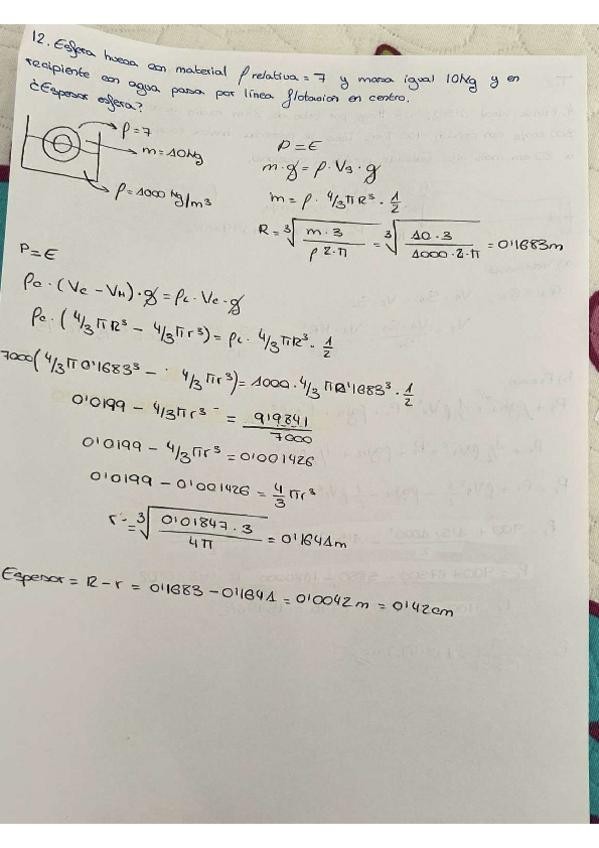 12. Esfera hueca con material ρ relativa = 7 y masa igual 10Kg y en
recipiente con agua pasa por línea flotacion en centro.
¿Espesor esfera?
ρ = 7
m = 10Kg
ρ = 1000 Kg/m³
P = E
m · g = ρ · Vs · g
m = ρ · 4/3 π R³ · 1/2
R = ∛(m · 3 / ρ 2 · π) = ∛(10 · 3 / 1000 · 2 · π) = 0'1683m
P = E
ρc · (Vc − VH) · g = ρL · Vc · g
ρc · (4/3 π R³ − 4/3 π r³) = ρL · 4/3 π R³ · 1/2
7000 (4/3 π 0'1683³ − 4/3 π r³) = 1000 · 4/3 π 0'1683³ · 1/2
0'0199 − 4/3 π r³ = 9'9841 / 7000
0'0199 − 4/3 π r³ = 0'001426
0'0199 − 0'001426 = 4/3 π r³
r = ∛(0'01847 · 3 / 4π) = 0'1641m
Espesor = R − r = 0'1683 − 0'1641 = 0'0042m = 0'42cm